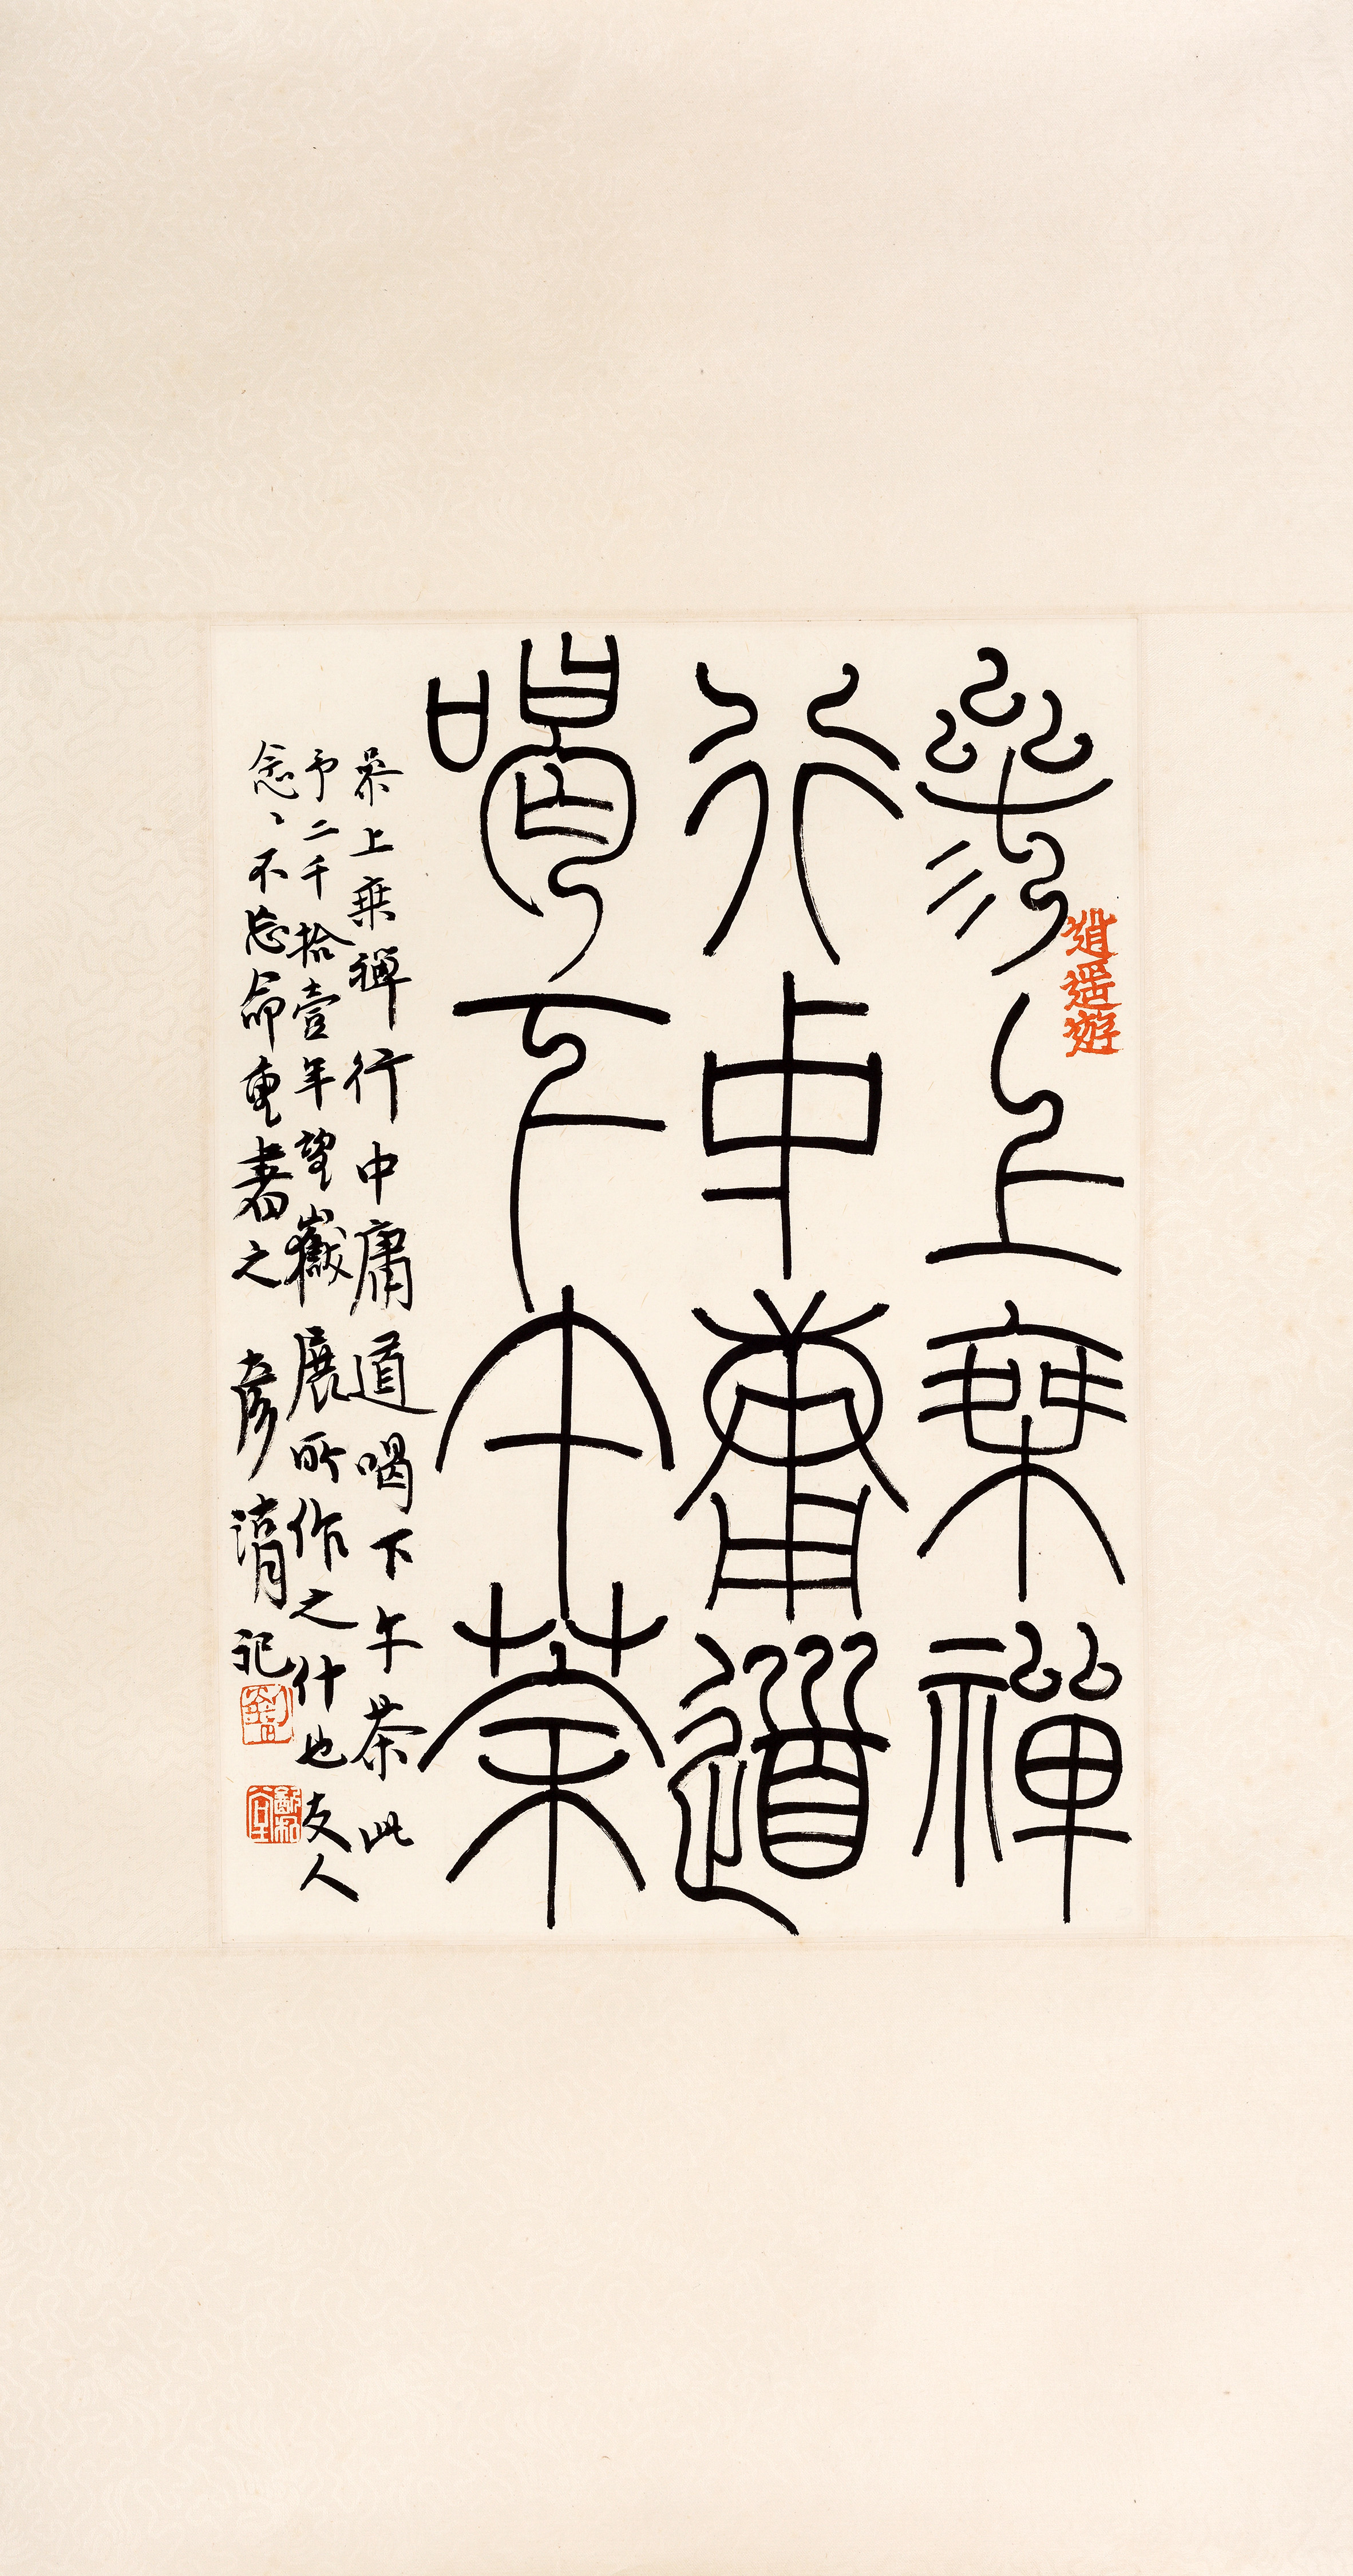 參上乘禪
行中庸道
喝下午茶
逍遥遊
參上乘禪行中庸道喝下午茶此
予二千拾壹年望嶽展所作之什也友人
念〻不忘命重書之 彥湇記